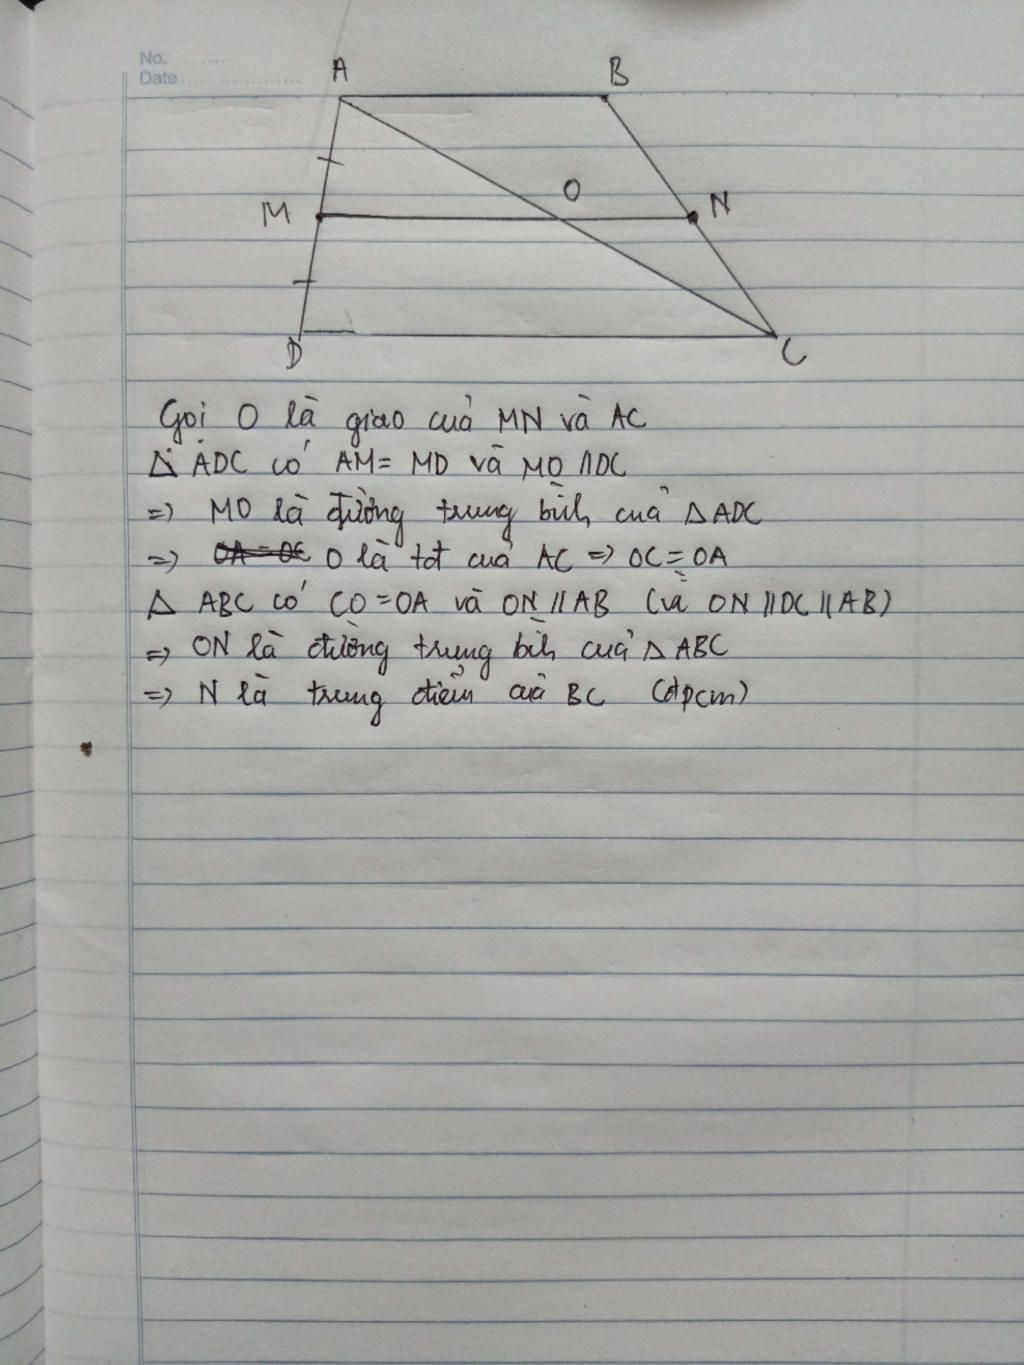 No.
Date
A
B
O
M
N
D
C
Gọi O là giao của MN và AC
△ ADC có AM = MD và MO // DC
=> MO là đường trung bình của △ ADC
=> O là tđ của AC => OC = OA
△ ABC có CO = OA và ON // AB (vì ON // DC // AB)
=> ON là đường trung bình của △ ABC
=> N là trung điểm của BC (đpcm)